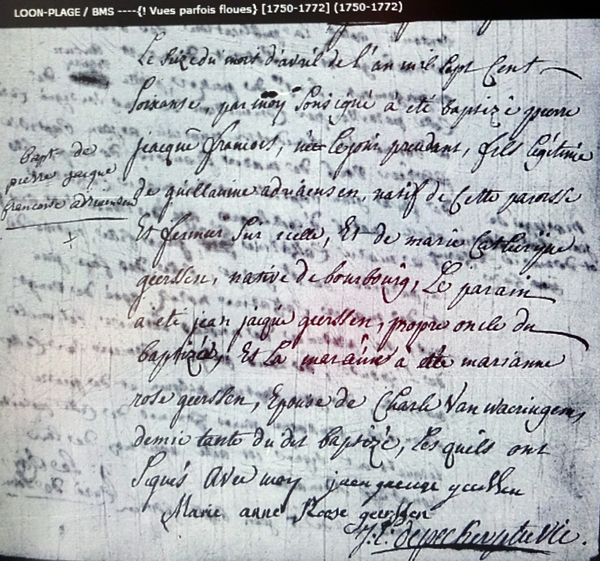 LOON-PLAGE / BMS ----{! Vues parfois floues} [1750-1772] (1750-1772)
Le size du mois d'avril de l'an mil sept Cent
soixante, par moy soussigné à été baptizé pierre
jacque francois, né le jour precedant, fils légitime
de guillaume adriaensen, natif de cette paroisse
Et fermier sur icelle, Et de marie Catherine
geerssen, native de bourbourg, Le parain
a été jean jacque geerssen, propre oncle du
baptizé, Et La maraine à été marianne
rose geerssen, Epouse de Charle Van waeringem,
demie tante du dit baptizé, Lesquels ont
signés avec moy
Marie anne Roose geerssen
bapt. de
pierre jacque
francois adriaensen